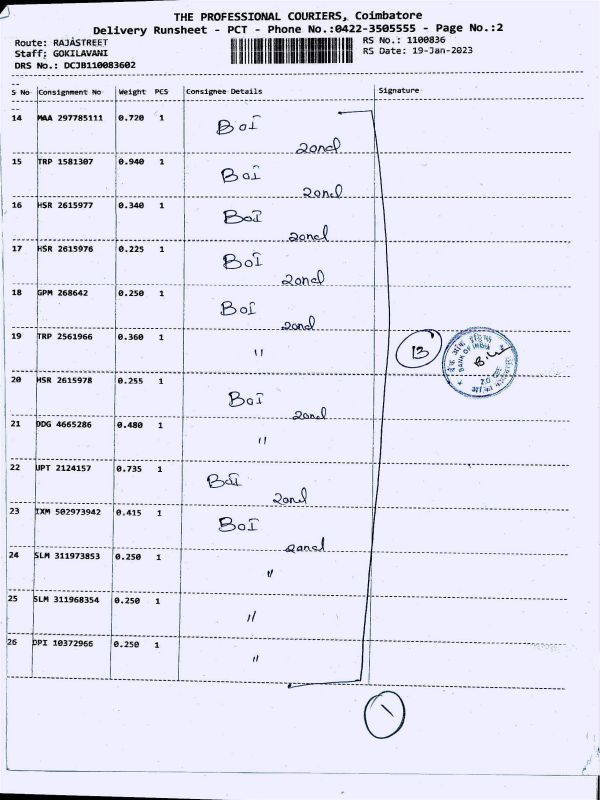 THE PROFESSIONAL COURIERS, Coimbatore
Delivery Runsheet - PCT - Phone No.:0422-3505555 - Page No.:2
Route: RAJASTREET RS No.: 1100836
Staff: GOKILAVANI RS Date: 19-Jan-2023
DRS No.: DCJB110083602
S No Consignment No Weight PCS Consignee Details Signature
14 MAA 297785111 0.720 1 BOI
zonal
15 TRP 1581307 0.940 1 BOI
zonal
16 HSR 2615977 0.340 1 BOI
zonal
17 HSR 2615976 0.225 1 BOI
zonal
18 GPM 268642 0.250 1 BOI
zonal
19 TRP 2561966 0.360 1 "
13
BANK OF INDIA
20 HSR 2615978 0.255 1 BOI
zonal
21 DDG 4665286 0.480 1 "
22 UPT 2124157 0.735 1 BOI
zonal
23 IXM 502973942 0.415 1 BOI
zonal
24 SLM 311973853 0.250 1 "
25 SLM 311968354 0.250 1 "
26 DPI 10372966 0.250 1 "
1